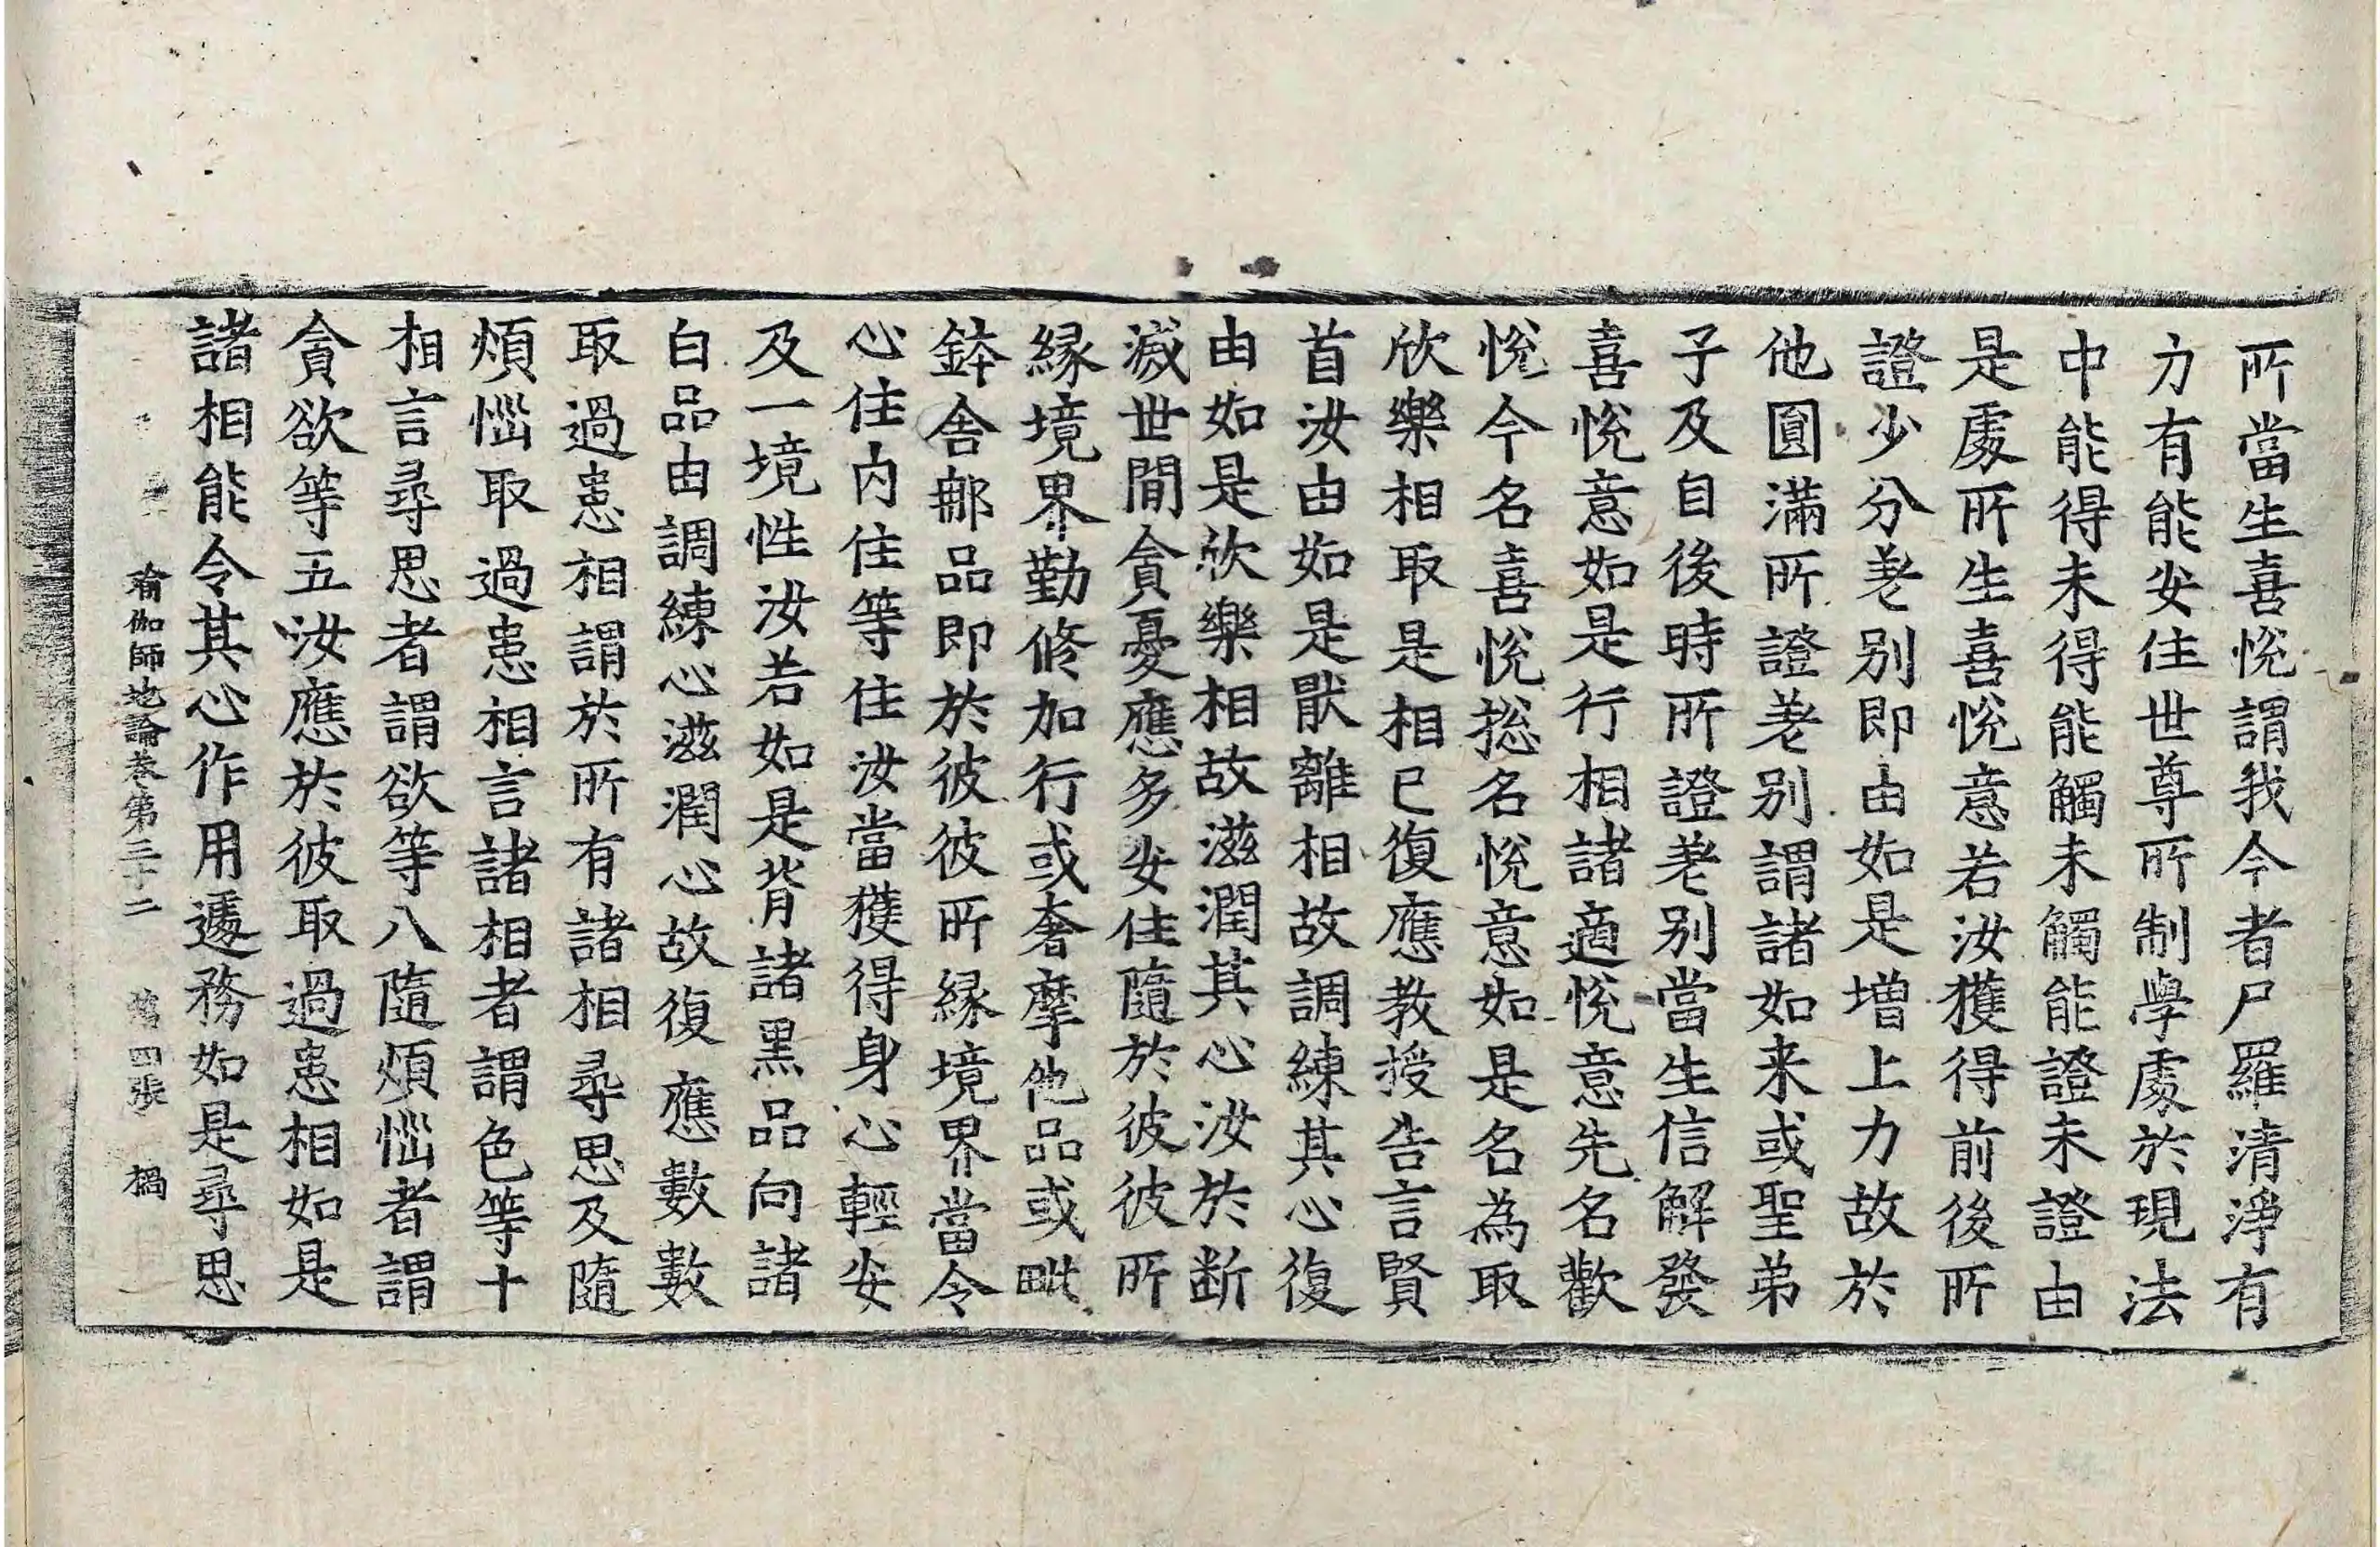 所當生喜悅謂我今者尸羅清淨有
力有能安住世尊所制學處於現法
中能得未得能觸未觸能證未證由
是處所生喜悅意若汝獲得前後所
證少分差別即由如是增上力故於
他圓滿所證差別謂諸如来或聖弟
子及自後時所證差別當生信解發
喜悅意如是行相諸適悅意先名歡
悅今名喜悅捴名悅意如是名為取
欣樂相取是相已復應教授告言賢
首汝由如是猒離相故調練其心復
由如是欣樂相故滋潤其心汝於断
滅世間貪憂應多安住隨於彼彼所
緣境界勤修加行或奢摩他品或毗
鉢舍那品即於彼彼所緣境界當令
心住内住等住汝當獲得身心輕安
及一境性汝若如是背諸黑品向諸
白品由調練心滋潤心故復應數數
取過患相謂於所有諸相尋思及隨
煩惱取過患相言諸相者謂色等十
相言尋思者謂欲等八隨煩惱者謂
貪欲等五汝應於彼取過患相如是
諸相能令其心作用遽務如是尋思
瑜伽師地論卷第三十二 第四張